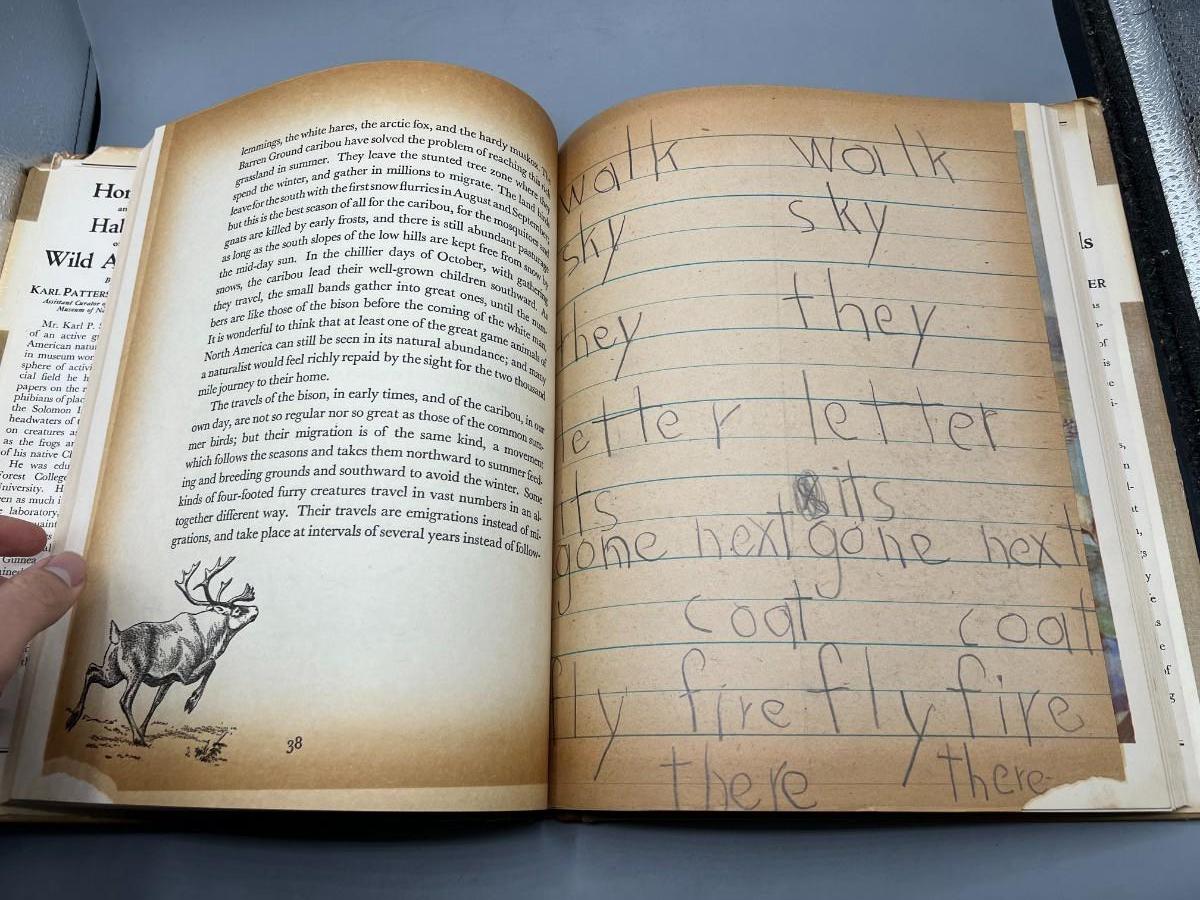 Wild
KARL
Assistant Curator
Mr. Karl P.
of an active
American
in museum
sphere of
cial field he
papers on the
of
the Solomon
headwaters of
on creatures
as the frogs
of his native
He was
Forest College
University.
en as much
laboratory,
Guinea
lemmings, the white hares, the arctic fox, and the hardy muskox. The
Barren Ground caribou have solved the problem of reaching this rich
grassland in summer. They leave the stunted tree zone where they
spend the winter, and gather in millions to migrate. The land birds
leave for the south with the first snow flurries in August and September;
but this is the best season of all for the caribou, for the mosquitoes and
gnats are killed by early frosts, and there is still abundant pasturage
as long as the south slopes of the low hills are kept free from snow by
the mid-day sun. In the chillier days of October, with gathering
snows, the caribou lead their well-grown children southward. As
they travel, the small bands gather into great ones, until the num-
bers are like those of the bison before the coming of the white man.
It is wonderful to think that at least one of the great game animals of
North America can still be seen in its natural abundance; and many
a naturalist would feel richly repaid by the sight for the two thousand
mile journey to their home.
The travels of the bison, in early times, and of the caribou, in our
own day, are not so regular nor so great as those of the common sum-
mer birds; but their migration is of the same kind, a movement
which follows the seasons and takes them northward to summer feed-
ing and breeding grounds and southward to avoid the winter. Some
kinds of four-footed furry creatures travel in vast numbers in an al-
together different way. Their travels are emigrations instead of mi-
grations, and take place at intervals of several years instead of follow-
38
walk walk
sky sky
they they
letter letter
its its
gone next gone next
coat coat
fly fire fly fire
there there